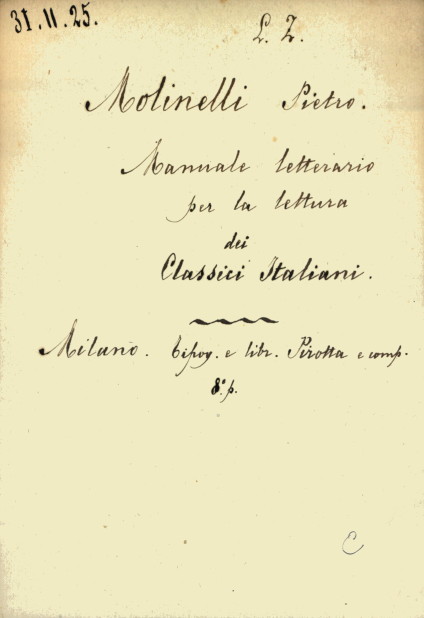 31.II.25.
L. Z.
Molinelli Pietro.
Manuale letterario
per la lettura
dei
Classici Italiani.
Milano. Tipog. e libr. Pirotta e comp.
8.° p.
C